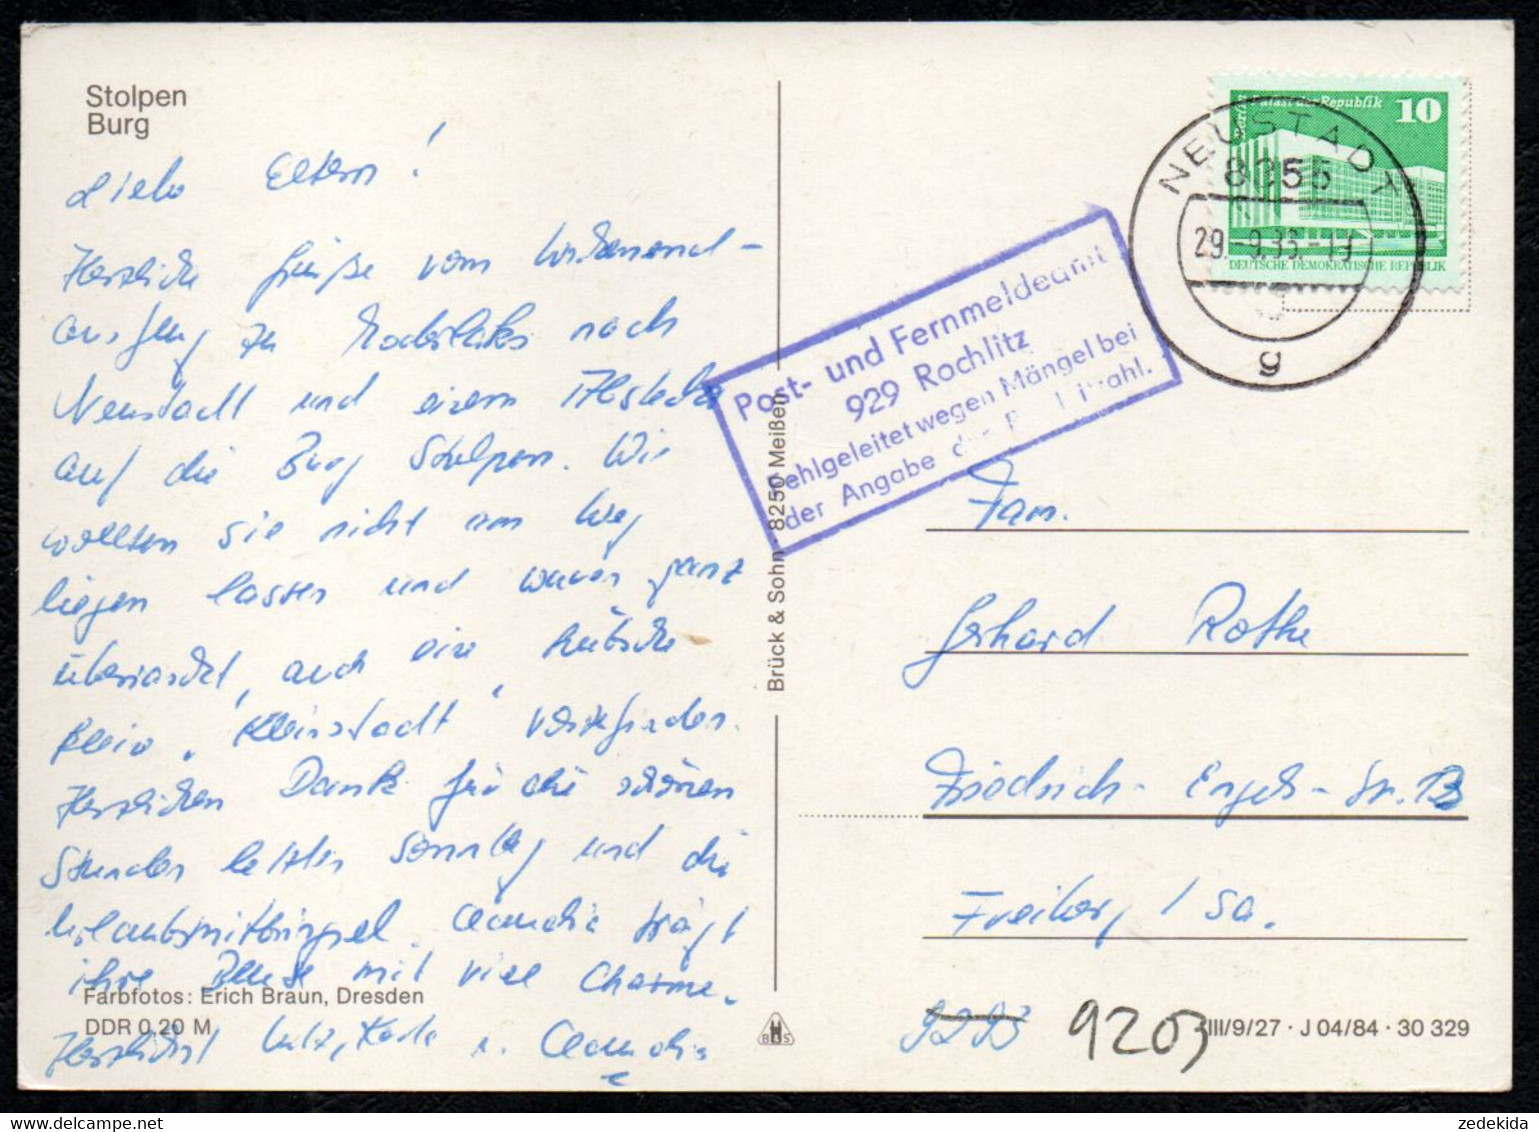 Stolpen
Burg
Liebe Eltern!
Herzliche Grüße vom Wochenend-
ausflug zu nach
Neustadt und einem Abstecher
auf die Burg Stolpen. Wir
wollten sie nicht am Weg
liegen lassen und waren ganz
überrascht, auch eine hübsche
kleine „Kleinstadt" vorzufinden.
Herzlichen Dank für die schönen
Stunden letzten Sonntag und die
Urlaubsmitbringsel. Claudia trägt
ihre Bluse mit viel Charme.
Herzlichst Lutz, u. Claudia
Farbfotos: Erich Braun, Dresden
DDR 0,20 M
Brück & Sohn · 8250 Meißen
BUS
Post- und Fernmeldeamt
929 Rochlitz
Fehlgeleitet wegen Mängel bei
der Angabe der
NEUSTADT
8355
29.-9.
g
Berlin Palast der Republik 10
DEUTSCHE DEMOKRATISCHE REPUBLIK
Fam.
Gerhard Rothe
Friedrich-Engels-Str. 13
Freiberg / Sa.
9293 9203
III/9/27 · J 04/84 · 30 329
zedekida